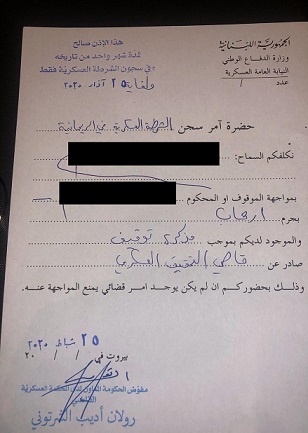 الجمهورية اللبنانية
وزارة الدفاع الوطني
النيابة العامة العسكرية
عدد /
هذا الإذن صالح
لمدة شهر واحد من تاريخه
في سجون الشرطة العسكرية فقط
ولغاية ٢٥ آذار ٢٠٢٠
حضرة آمر سجن الشرطة العسكرية في الريحانية
نكلفكم السماح:
بمواجهة الموقوف او المحكوم
بجرم ارهاب
والموجود لديكم بموجب مذكرة توقيف
صادر عن قاضي التحقيق العسكري
وذلك بحضوركم ان لم يكن يوجد امر قضائي يمنع المواجهة عنه.
٢٥ شباط ٢٠٢٠
بيروت في / / ٢٠
مفوض الحكومة المعاون لدى المحكمة العسكرية
القاضي
رولان أديب الشرتوني